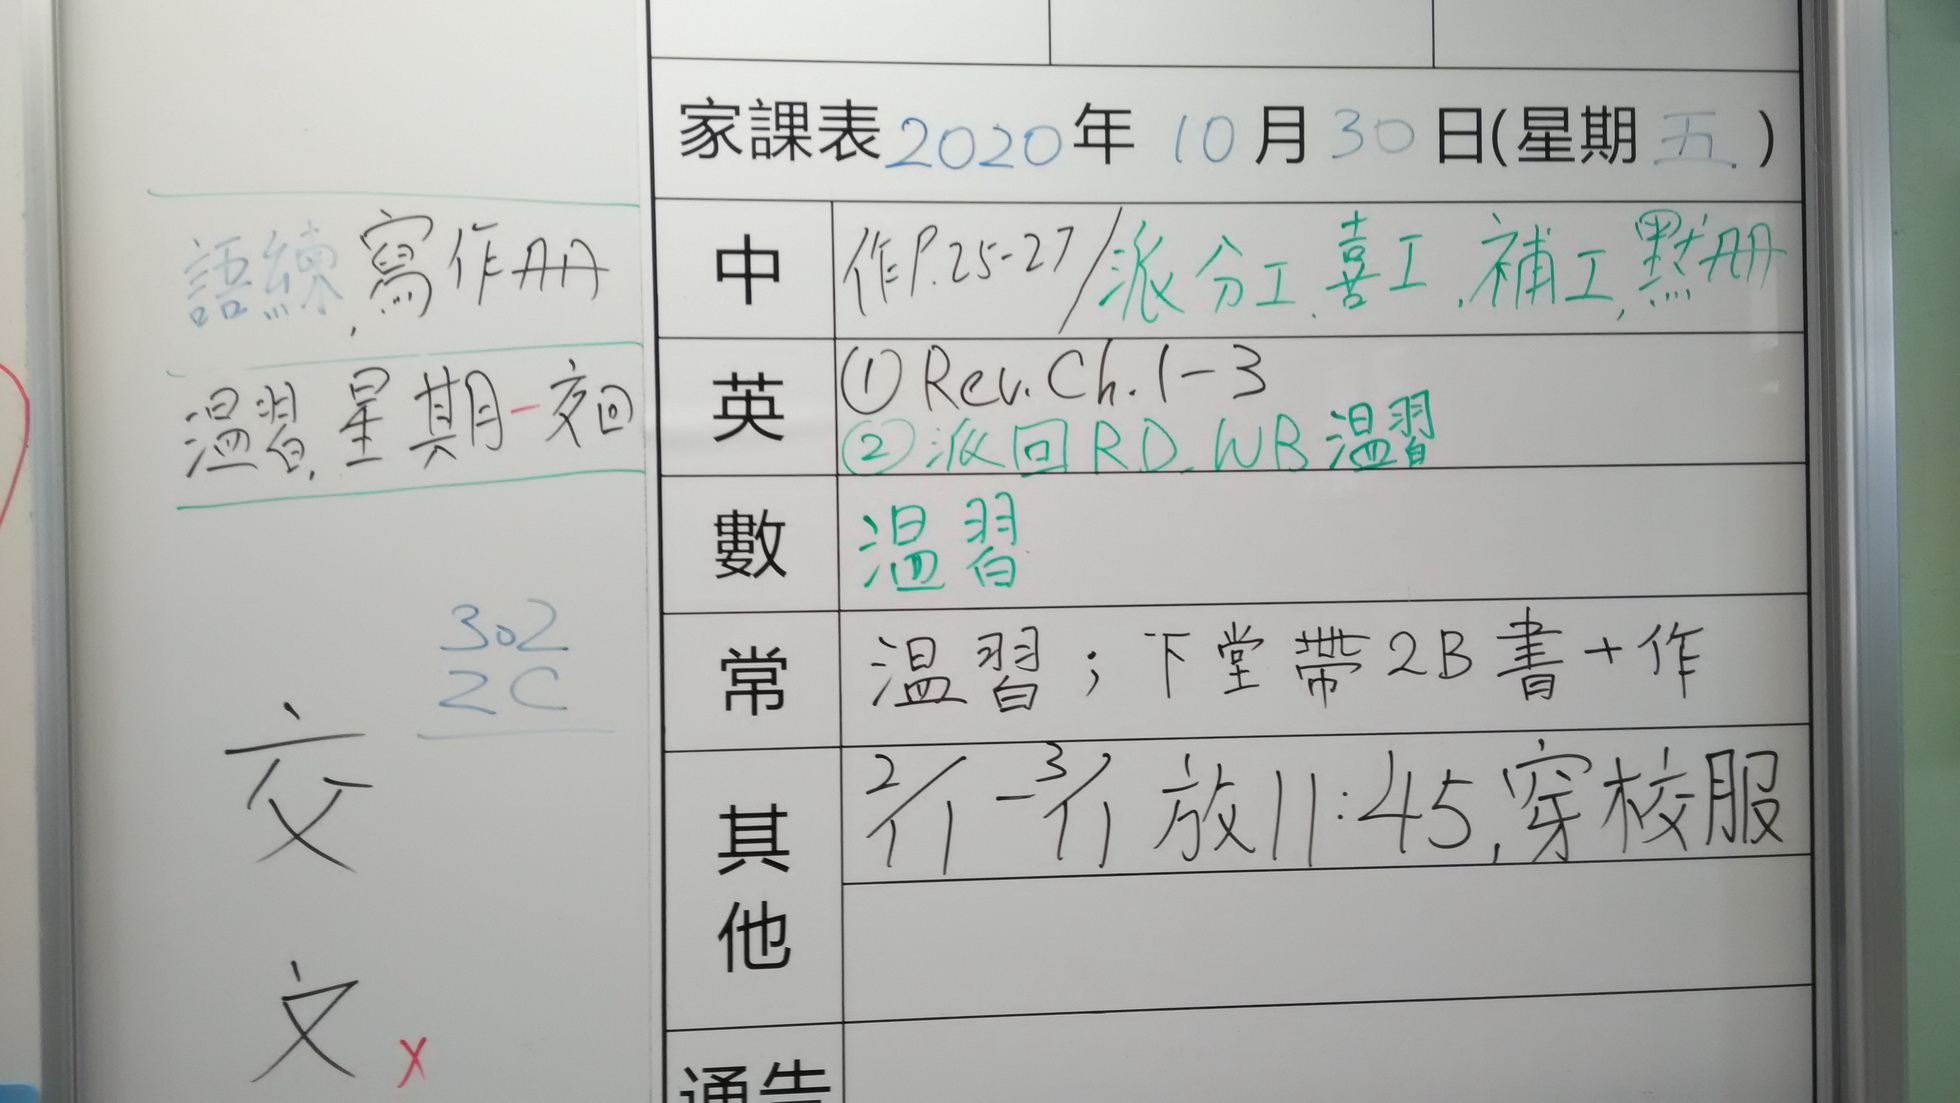 家課表2020年10月30日(星期五)
語練,寫作冊
溫習,星期一交回
中 作P.25-27/派分工.喜工,補工,默冊
英 ①Rev.Ch.1-3
②派回RD.WB溫習
數 溫習
常 溫習；下堂帶2B書+作
302
2C
交
文 x
其他 2/11-3/11放11:45,穿校服
通告